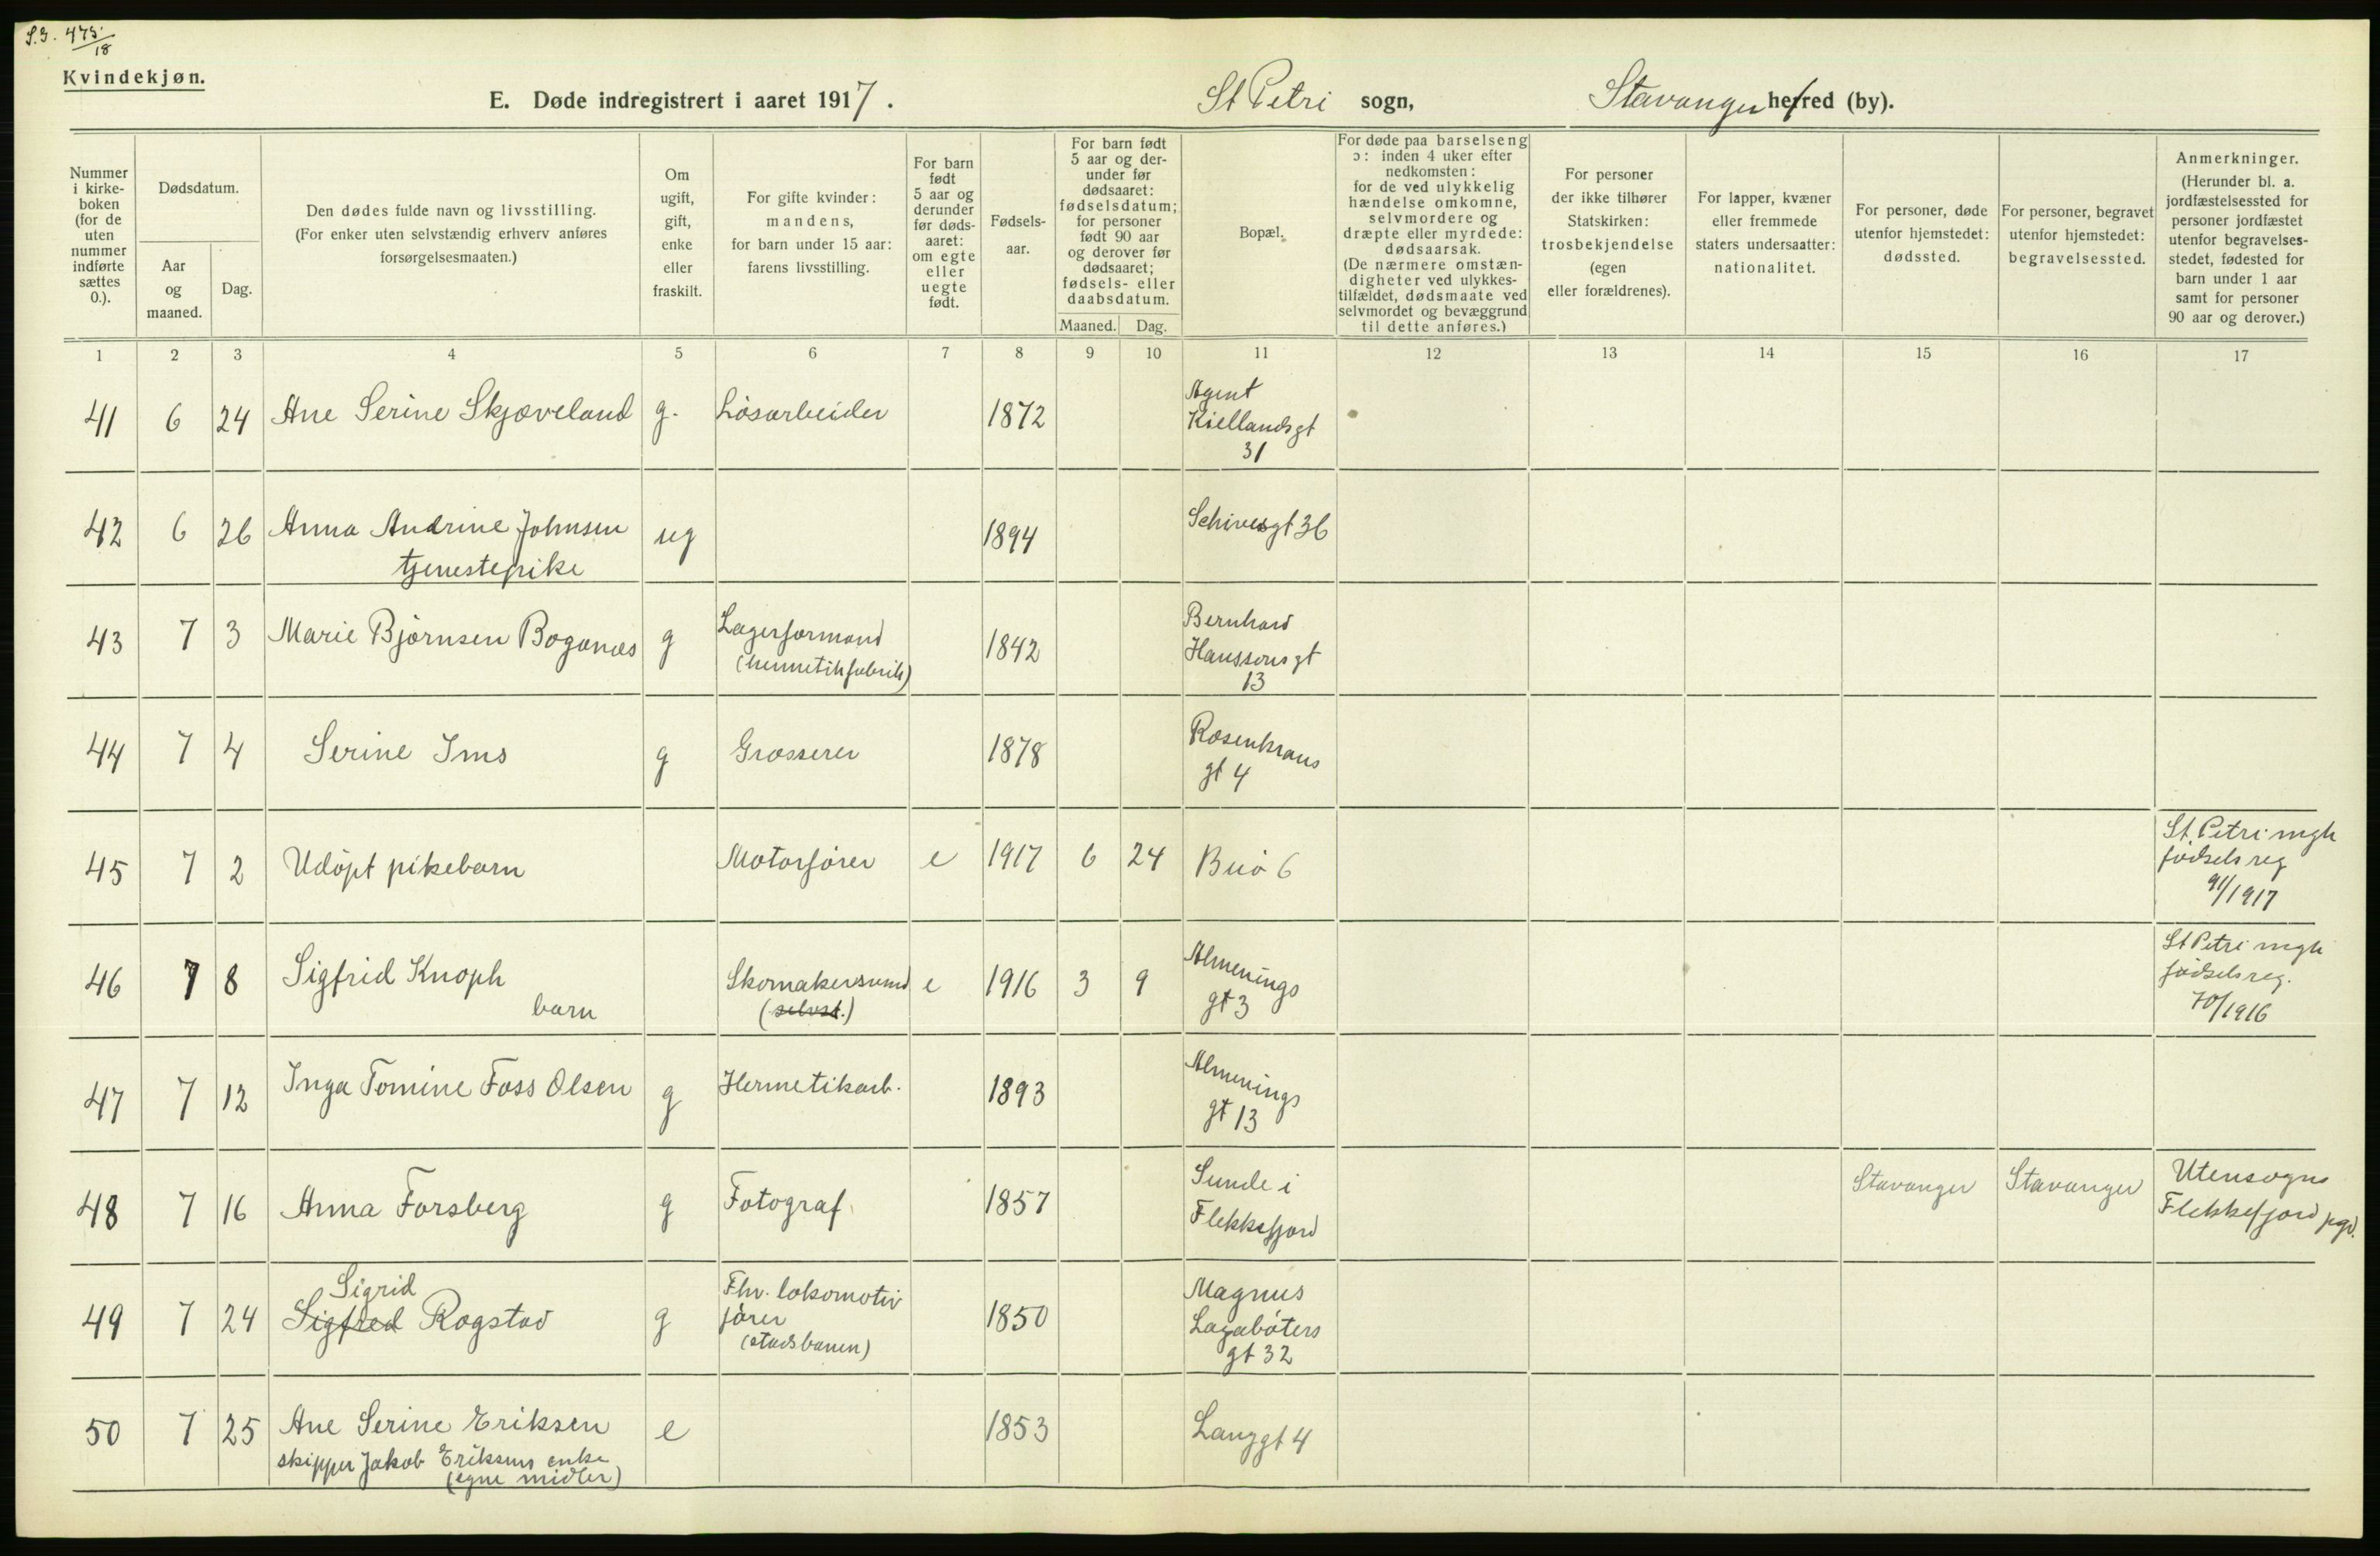 S.J. 475/18
Kvindekjøn.
E. Døde indregistrert i aaret 1917. St Petri sogn, Stavanger herred (by).
Nummer i kirke-boken (for de uten nummer indførte sættes 0.).
Dødsdatum.
Aar og maaned.
Dag.
Den dødes fulde navn og livsstilling.
(For enker uten selvstændig erhverv anføres forsørgelsesmaaten.)
Om ugift, gift, enke eller fraskilt.
For gifte kvinder: mandens, for barn under 15 aar: farens livsstilling.
For barn født 5 aar og derunder før døds-aaret: om egte eller uegte født.
Fødsels-aar.
For barn født 5 aar og der-under før dødsaaret: fødselsdatum; for personer født 90 aar og derover før dødsaaret; fødsels- eller daabsdatum.
Maaned. Dag.
Bopæl.
For døde paa barselseng ɔ: inden 4 uker efter nedkomsten: for de ved ulykkelig hændelse omkomne, selvmordere og dræpte eller myrdede: dødsaarsak. (De nærmere omstæn-digheter ved ulykkes-tilfældet, dødsmaate ved selvmordet og bevæggrund til dette anføres.)
For personer der ikke tilhører Statskirken: trosbekjendelse (egen eller forældrenes).
For lapper, kvæner eller fremmede staters undersaatter: nationalitet.
For personer, døde utenfor hjemstedet: dødssted.
For personer, begravet utenfor hjemstedet: begravelsessted.
Anmerkninger. (Herunder bl. a. jordfæstelsessted for personer jordfæstet utenfor begravelses-stedet, fødested for barn under 1 aar samt for personer 90 aar og derover.)
1 2 3 4 5 6 7 8 9 10 11 12 13 14 15 16 17
41 6 24 Ane Serine Skjæveland g. Løsarbeider 1872 Agent Kiellandsgt 31
42 6 26 Anna Andrine Johnsen tjenestepike ug 1894 Schivesgt 36
43 7 3 Marie Bjørnsen Boganæs g Lagerformand (hermetikfabrik) 1842 Bernhard Hanssensgt 13
44 7 4 Serine Ims g Grosserer 1878 Rosenkrans gt 4
45 7 2 Udøpt pikebarn Motorfører e 1917 6 24 Buø 6 St. Petri mgh fødselsreg 91/1917
46 7 8 Sigfrid Knoph barn Skomakersvend (selvst.) e 1916 3 9 Almenings gt 3 St Petri mgh fødselsreg. 70/1916
47 7 12 Inga Tomine Foss Olsen g Hermetikarb. 1893 Almenings gt 13
48 7 16 Anna Forsberg g Fotograf 1857 Sunde i Flekkefjord Stavanger Stavanger Utensogns Flekkefjord pgd.
49 7 24 Sigfred Sigrid Rogstad g Fhv. lokomotiv fører (stadsbanen) 1850 Magnus Lagabøters gt 32
50 7 25 Ane Serine Eriksen skipper Jakob Eriksens enke (egne midler) e 1853 Langgt 4